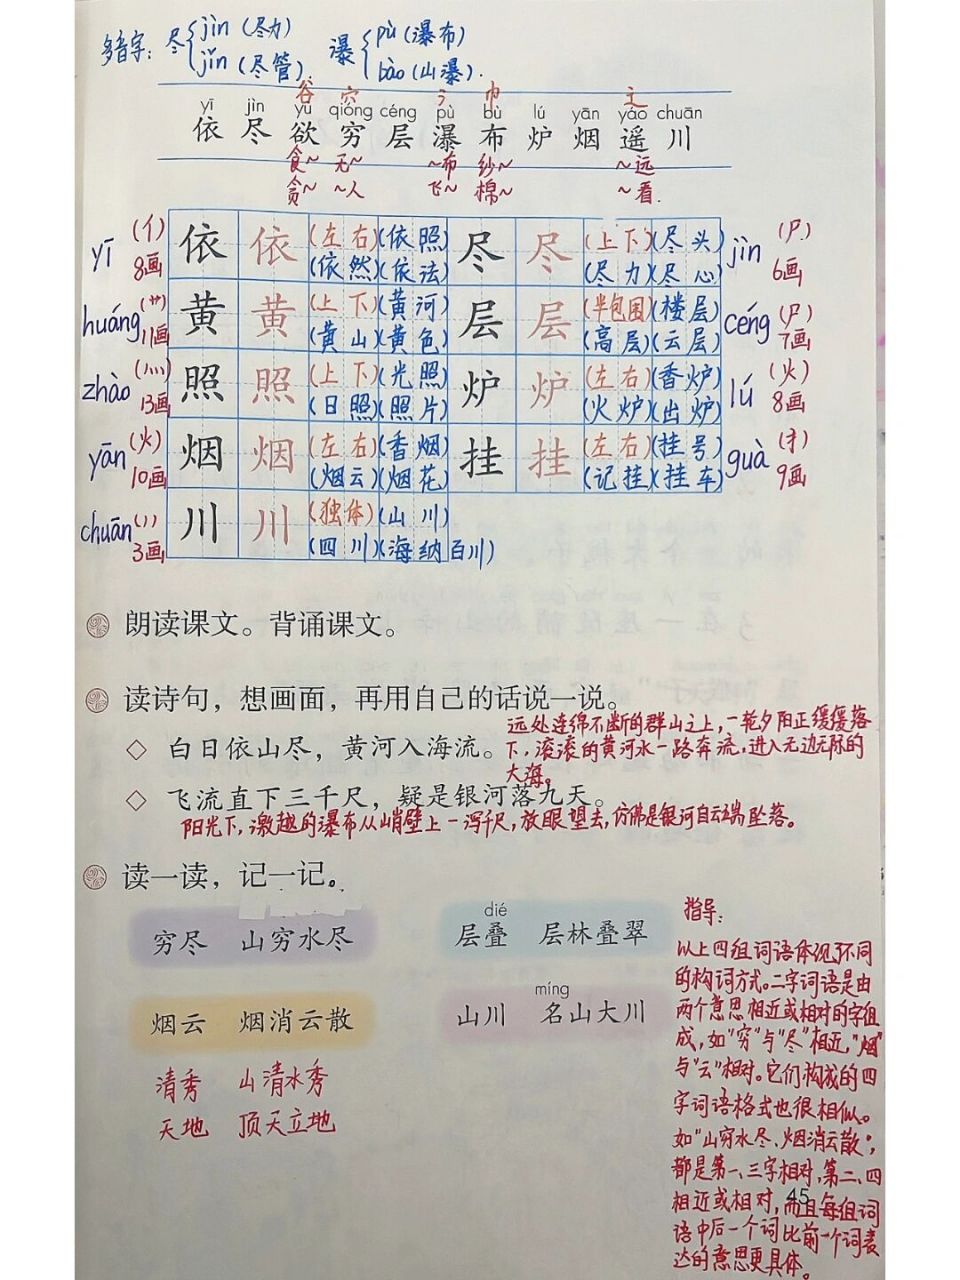 多音字: 尽{jìn (尽力) 瀑{pù (瀑布)
jǐn (尽管) bào (山瀑).
谷 穴 氵 巾 辶
yī jìn yù qióng céng pù bù lú yān yáo chuān
依 尽 欲 穷 层 瀑 布 炉 烟 遥 川
食~ 无~ ~布 纱~ ~远
贪~ ~人 飞~ 棉~ ~看.
yī (亻) 8画 依 依 (左右)(依照) 尽 尽 (上下)(尽头) jìn (尸) 6画
(依然)(依法) (尽力)(尽心)
huáng (艹) 11画 黄 黄 (上下)(黄河) 层 层 (半包围)(楼层) céng (尸) 7画
(黄山)(黄色) (高层)(云层)
zhào (灬) 13画 照 照 (上下)(光照) 炉 炉 (左右)(香炉) lú (火) 8画
(日照)(照片) (火炉)(出炉)
yān (火) 10画 烟 烟 (左右)(香烟) 挂 挂 (左右)(挂号) guà (扌) 9画
(烟云)(烟花) (记挂)(挂车)
chuān (丿) 3画 川 川 (独体)(山川)
(四川)(海纳百川)
朗读课文。背诵课文。
读诗句，想画面，再用自己的话说一说。
◇ 白日依山尽，黄河入海流。
远处连绵不断的群山之上,一轮夕阳正缓缓落
下,滚滚的黄河水一路奔流,进入无边无际的
大海。
◇ 飞流直下三千尺，疑是银河落九天。
阳光下,激越的瀑布从峭壁上一泻千尺,放眼望去,仿佛是银河自云端坠落。
读一读，记一记。
dié
穷尽 山穷水尽 层叠 层林叠翠
míng
烟云 烟消云散 山川 名山大川
清秀 山清水秀
天地 顶天立地
指导:
以上四组词语体现了不同
的构词方式。二字词语是由
两个意思相近或相对的字组
成,如"穷"与"尽"相近,"烟"
与"云"相对。它们构成的四
字词语格式也很相似。
如"山穷水尽、烟消云散",
都是第一、三字相对,第二、四
相近或相对,而且每组词
语中后一个词比前一个词表
达的意思更具体。
45